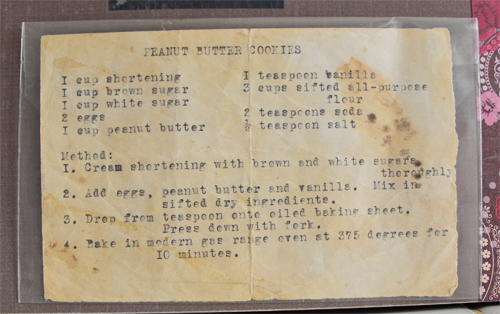 PEANUT BUTTER COOKIES
I cup shortening
I cup brown sugar
I cup white sugar
2 eggs
I cup peanut butter
I teaspoon vanilla
3 cups sifted all-purpose
flour
2 teaspoons soda
½ teaspoon salt
Method:
I. Cream shortening with brown and white sugars
thoroughly
2. Add eggs, peanut butter and vanilla. Mix in
sifted dry ingredients.
3. Drop from teaspoon onto oiled baking sheet.
Press down with fork.
4. Bake in modern gas range oven at 375 degrees for
IO minutes.